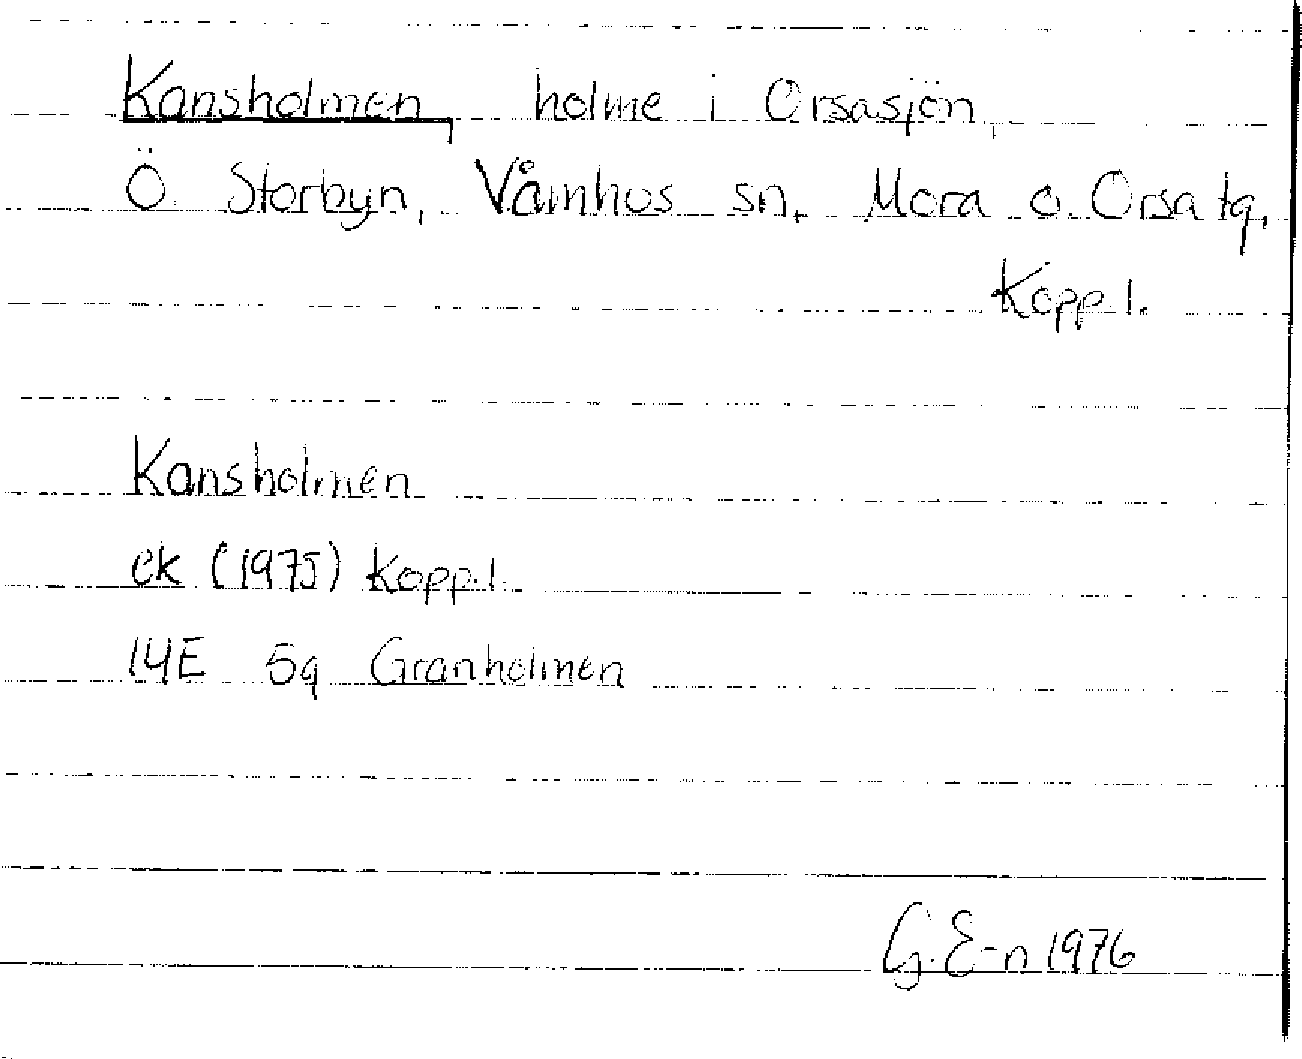 Kansholmen, holme i Orsasjön,
Ö Storbyn, Våmhus sn, Mora o Orsa tg,
Kopp l.
Kansholmen
ek (1975) Kopp.l.
14E 5g Granholmen
G. E-n 1976